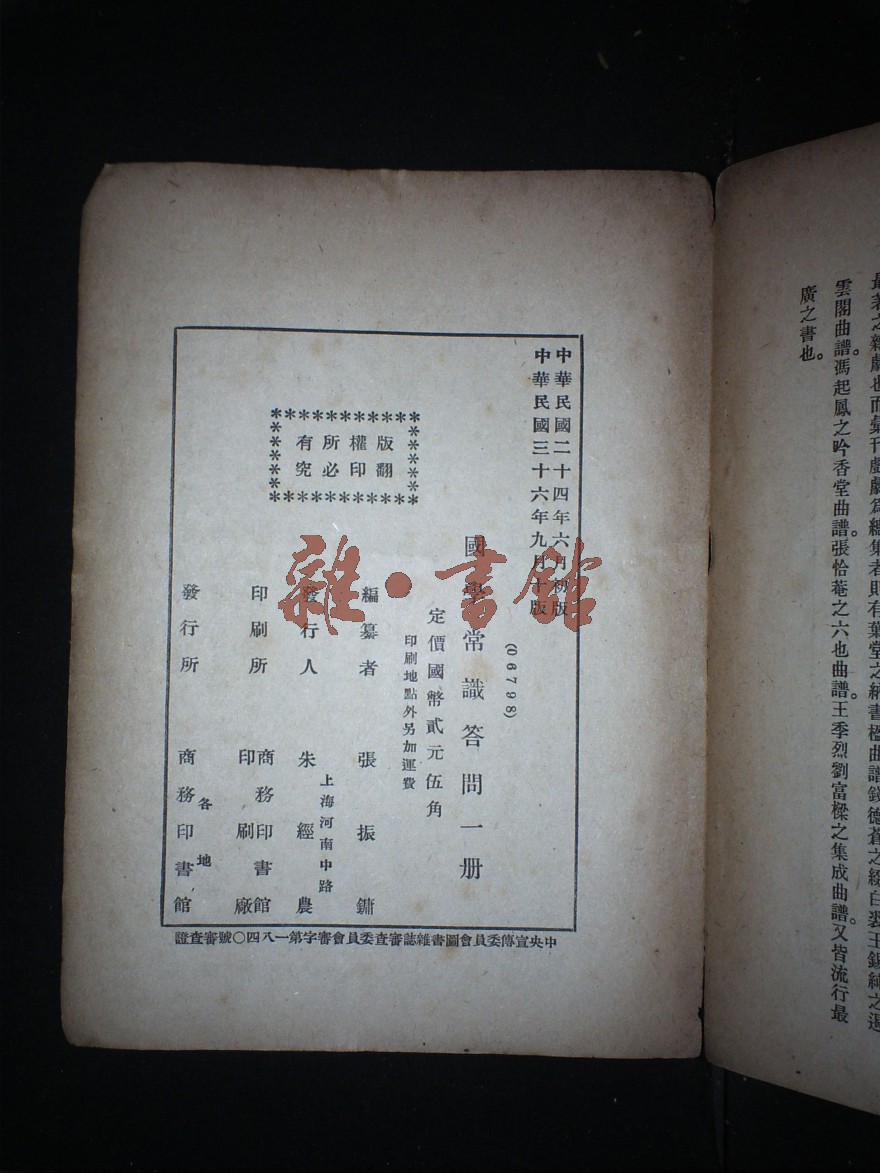 最著之雜劇也而彙刊戲劇爲總集者則有葉堂之納書楹曲譜錢德蒼之綴白裘王錫純之遏
雲閣曲譜。馮起鳳之吟香堂曲譜。張怡菴之六也曲譜。王季烈劉富樑之集成曲譜。又皆流行最
廣之書也。
中華民國二十四年六月初版
中華民國三十六年九月十版
(06798)
國學常識答問一册
定價國幣貳元伍角
印刷地點外另加運費
版權所有
翻印必究
編纂者 張振鏞
上海河南中路
發行人 朱經農
印刷所 商務印書館
印刷廠
發行所 各地
商務印書館
中央宣傳委員會圖書雜誌審查委員會審字第一八四〇號審查證
雜·書館